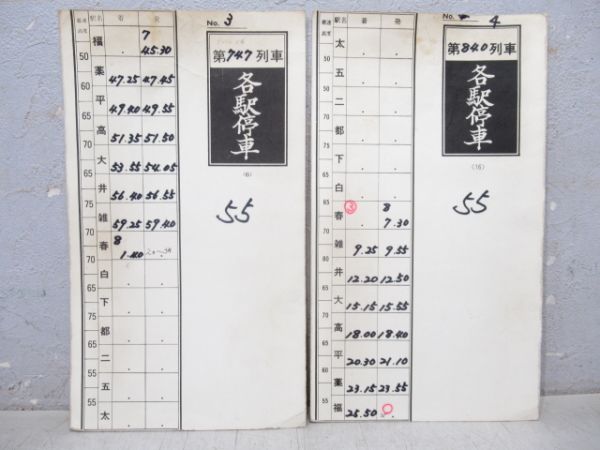 最速 駅名 着 発
高度
福 7
. 45.30
50
薬 47.25 47.45
55
平 49.40 49.55
60
高 51.35 51.50
65
大 53.55 54.05
65
井 56.40 56.55
65
雑 59.25 59.40
70
春 8
1.40
70
白 . .
65
下 . .
65
都 . .
60
二 . .
55
五 . .
55
太 . .
No. 3
第747列車
各駅停車
(6)
55
駅名 着 発
高度
太 . .
50
五 . .
55
二 . .
60
都 . .
65
下 . .
65
白 . .
65
春 ③ 8
. 7.30
70
雑 9.25 9.55
70
井 12.20 12.50
65
大 15.15 15.55
65
高 18.00 18.40
60
平 20.30 21.10
55
薬 23.15 23.55
55
福 25.50
No. 4
第840列車
各駅停車
(16)
55